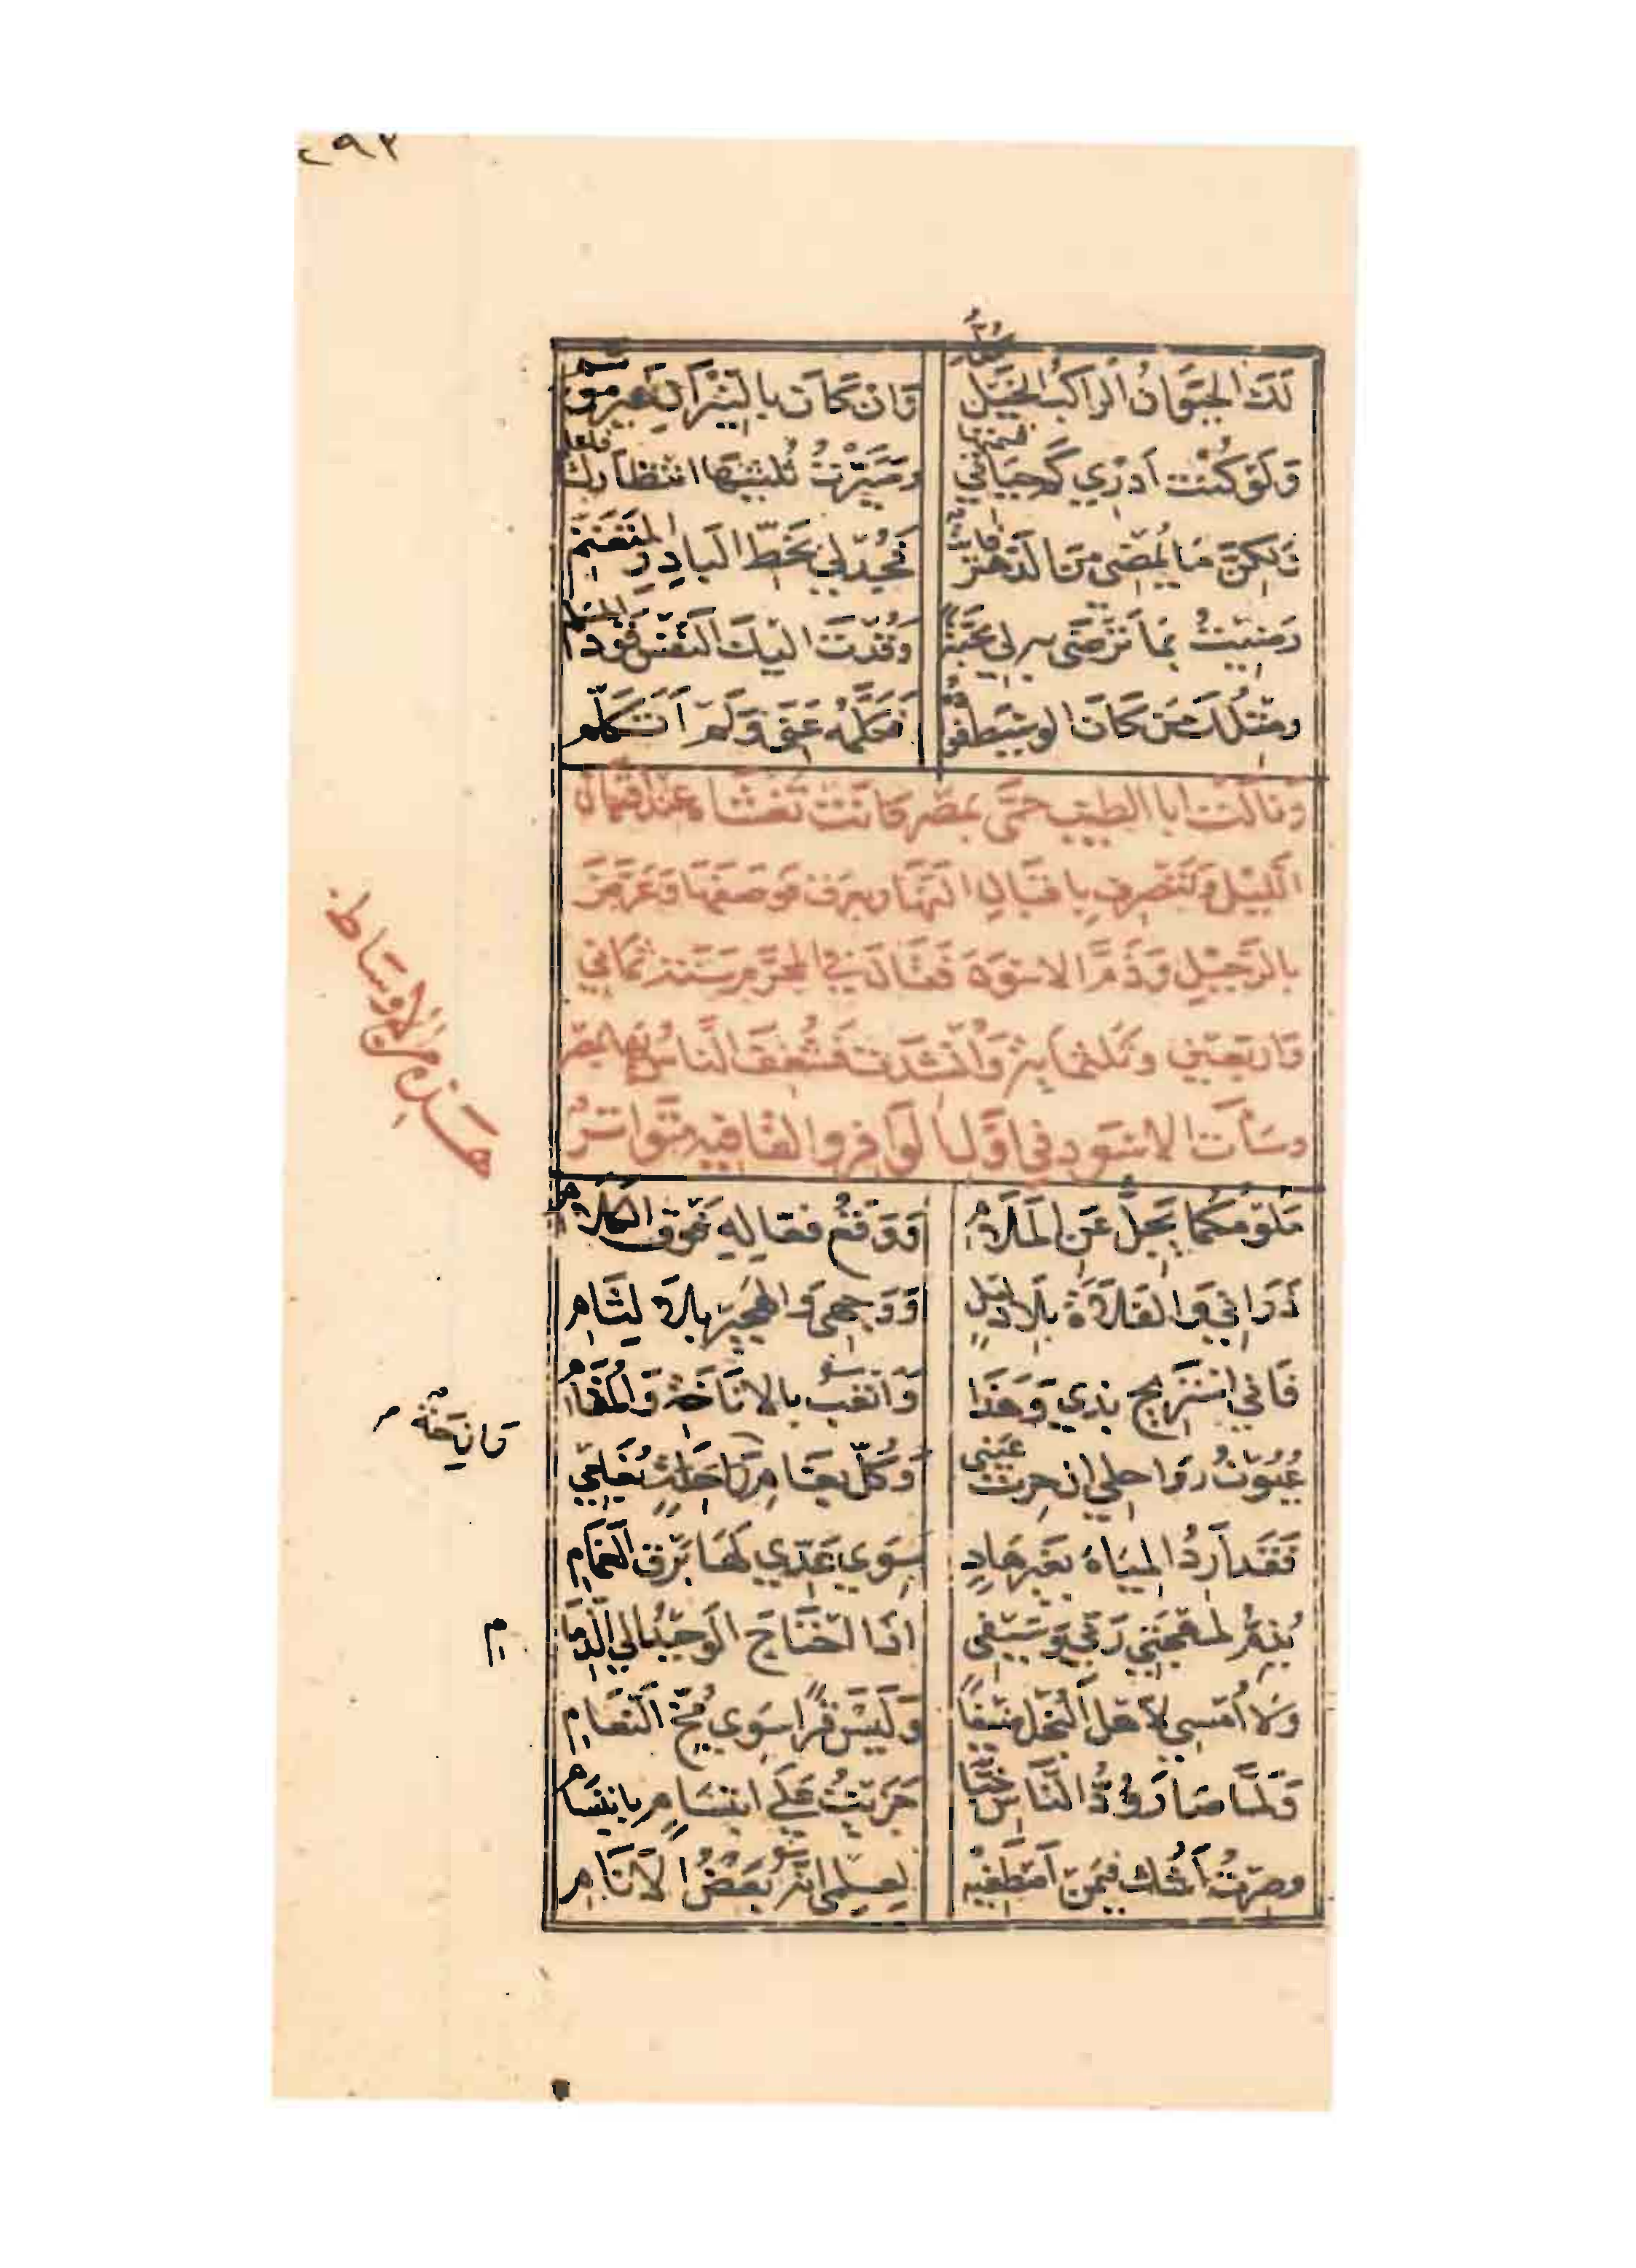 ٢٩٢
لَكَ الحَيَوانُ الرَّاكبُ الخَيلَ كُلُّهُ وَإن كَانَ بِالنّيرَانِ غيرَ مُوَسَّمِ
وَلَوْ كُنْتُ أَدْري كَمْ حَيَاتي قَسَمْتُهَا وصَيَّرْتُ ثُلْثَيْهَا انْتِظَارَكَ فاعلمِ
وَلكِنَّ مَا يَمْضِى مِنَ الدَّهْرِ فَائِتٌ فَجُدْ لي بِحَظِّ البَادِرِ المُتَغَنِّمِ
رَضِيتُ بمَا تَرْضَى به لى مَحَبَّةً وَقُدْتُ اليكَ النَّفْسَ قَوْدَ المُسَلِّمِ
ومِثْلُكَ مَنْ كَانَ الوسِيطَ فُؤادُهُ فَكَلَّمَهُ عَنّى وَلَمْ أَتَكَلَّمِ
ونَالَتْ ابا الطيب حمَّى بمصر كَانَتْ تَغْشَاه عند اقبَال
اللَّيْلِ وَتَنْصَرِف بِاقبَالِ النَّهَار بعرق فوصفهَا وَعَرَّضَ
بالرَّحِيْلِ وَذَمَّ الاسْوَدَ فَقَالَ في المحَرَّم سَنَة ثمَاني
وَاربَعين وثلثمايه وَأُنْشدت فشُغِفَ النَّاسُ بهَا بمصر
وسَاءَت الاسْوَد في اوَّل الوَافِر والقَافِيه متواتر
هَذه مِن الاوسَاط
مَلُومُكُمَا يَجِلُّ عَنِ المَلَامِ وَوَقْعُ فعَالِهِ فَوْقَ الكَلَامِ
ذَرَاني وَالفَلَاةَ بِلَا دَلِيلٍ وَوَجهى وَالهَجِيرَ بِلَا لِثَامِ
فَاني اسْتَرِيحُ بذي وَهَذَا وَاتْعَبُ بالانَاخَةِ وَالمُقَامِ
فَانِيخَةٌ
عُيُونُ رَوَاحِلي ان حِرتُ عَيْني وَكُلُّ بغَامِ رَازِحَةٍ بُغَامي
فَقَد أَرِدُ المِيَاهَ بغَيرِ هَادٍ سِوَى عَدّي لَهَا بَرْقَ الغَمَامِ
يُذِمُّ لمُهْجَتي رَبّي وَسَيْفي اذَا احْتَاجَ الوَحِيدُ الي الذّمَا
مِ
وَلَا أُمْسِي لأَهْلِ البُخلِ ضَيْفاً وَلَيْسَ قِرًا سِوَى مُخِّ النَعَامِ
وَلمَّا صَارَ وُدُّ النَّاسِ خِبًّا جَزَيْتُ عَلَى ابْتِسَامٍ بِابْتِسَامِ
وصِرْتُ أَشُكُّ فيمَنْ أَصْطَفيهِ لعِلْمِى انَّهُ بَعْضُ الأَنَامِ